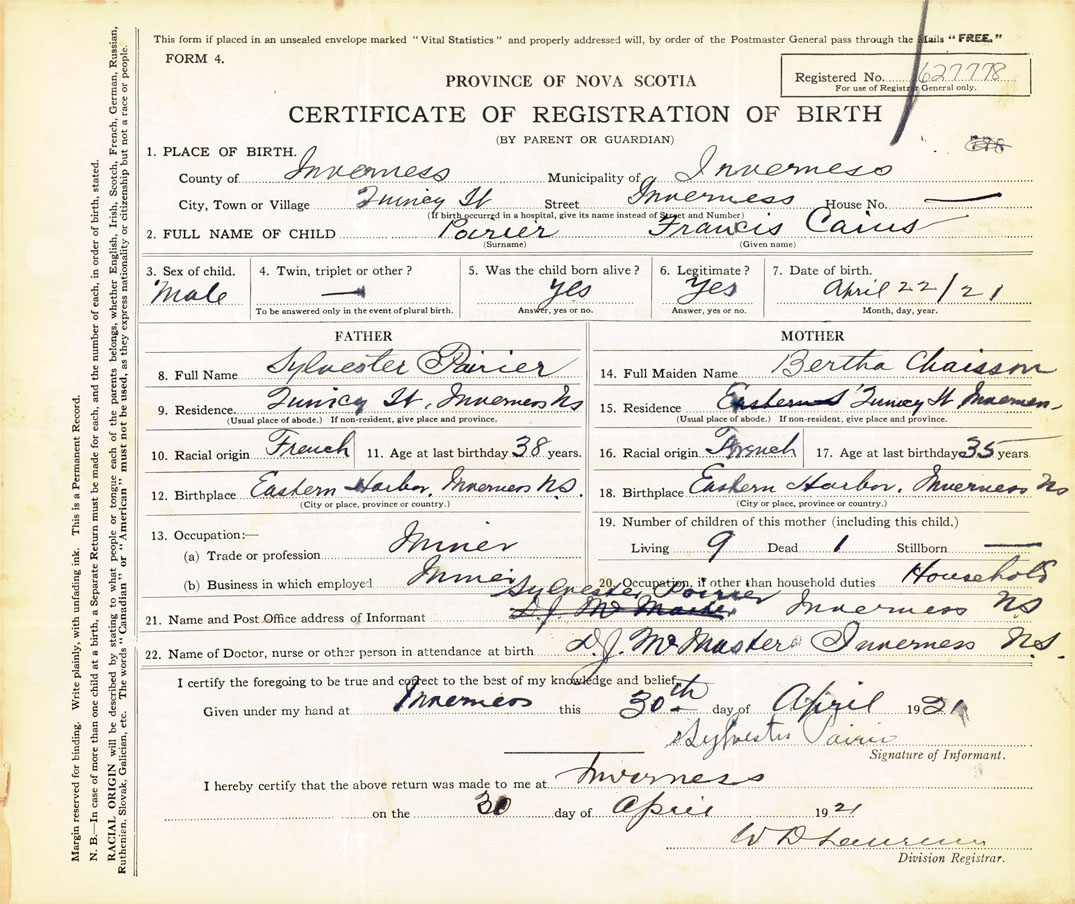 This form if placed in an unsealed envelope marked "Vital Statistics" and properly addressed will, by order of the Postmaster General pass through the Mails "FREE."
FORM 4.
PROVINCE OF NOVA SCOTIA
Registered No. 627778
For use of Registrar General only.
CERTIFICATE OF REGISTRATION OF BIRTH
(BY PARENT OR GUARDIAN)
778
1. PLACE OF BIRTH.
County of Inverness Municipality of Inverness
City, Town or Village St Street Inverness House No. —
(If birth occurred in a hospital, give its name instead of Street and Number)
2. FULL NAME OF CHILD Poirier Francis Caius
(Surname) (Given name)
3. Sex of child. 4. Twin, triplet or other? 5. Was the child born alive? 6. Legitimate? 7. Date of birth.
Male — Yes Yes April 22/21
To be answered only in the event of plural birth. Answer, yes or no. Answer, yes or no. Month, day, year.
FATHER
8. Full Name Sylvester Poirier
9. Residence. St, Inverness NS
(Usual place of abode.) If non-resident, give place and province.
10. Racial origin French 11. Age at last birthday 38 years.
12. Birthplace Eastern Harbor, Inverness N.S.
(City or place, province or country.)
13. Occupation:—
(a) Trade or profession Miner
(b) Business in which employed
MOTHER
14. Full Maiden Name Bertha Chaisson
15. Residence Eastern St
(Usual place of abode.) If non-resident, give place and province.
16. Racial origin French 17. Age at last birthday 35 years
18. Birthplace Eastern Harbor, Inverness NS
(City or place, province or country.)
19. Number of children of this mother (including this child.)
Living 9 Dead 1 Stillborn —
20. Occupation, if other than household duties Household
Sylvester Poirier
21. Name and Post Office address of Informant D.J. McMaster Inverness NS
22. Name of Doctor, nurse or other person in attendance at birth D.J. McMaster Inverness N.S.
I certify the foregoing to be true and correct to the best of my knowledge and belief.
Given under my hand at Inverness this 30th day of April 1921
Sylvester Poirier
Signature of Informant.
I hereby certify that the above return was made to me at Inverness
on the 30 day of April 1921
W D
Division Registrar.
Margin reserved for binding. Write plainly, with unfading ink. This is a Permanent Record.
N. B.—In case of more than one child at a birth, a Separate Return must be made for each, and the number of each, in order of birth, stated.
RACIAL ORIGIN will be described by stating to what people or tongue each of the parents belongs, whether English, Irish, Scotch, French, German, Russian,
Ruthenian, Slovak, Galician, etc. The words "Canadian" or "American" must not be used, as they express nationality or citizenship but not a race or people.